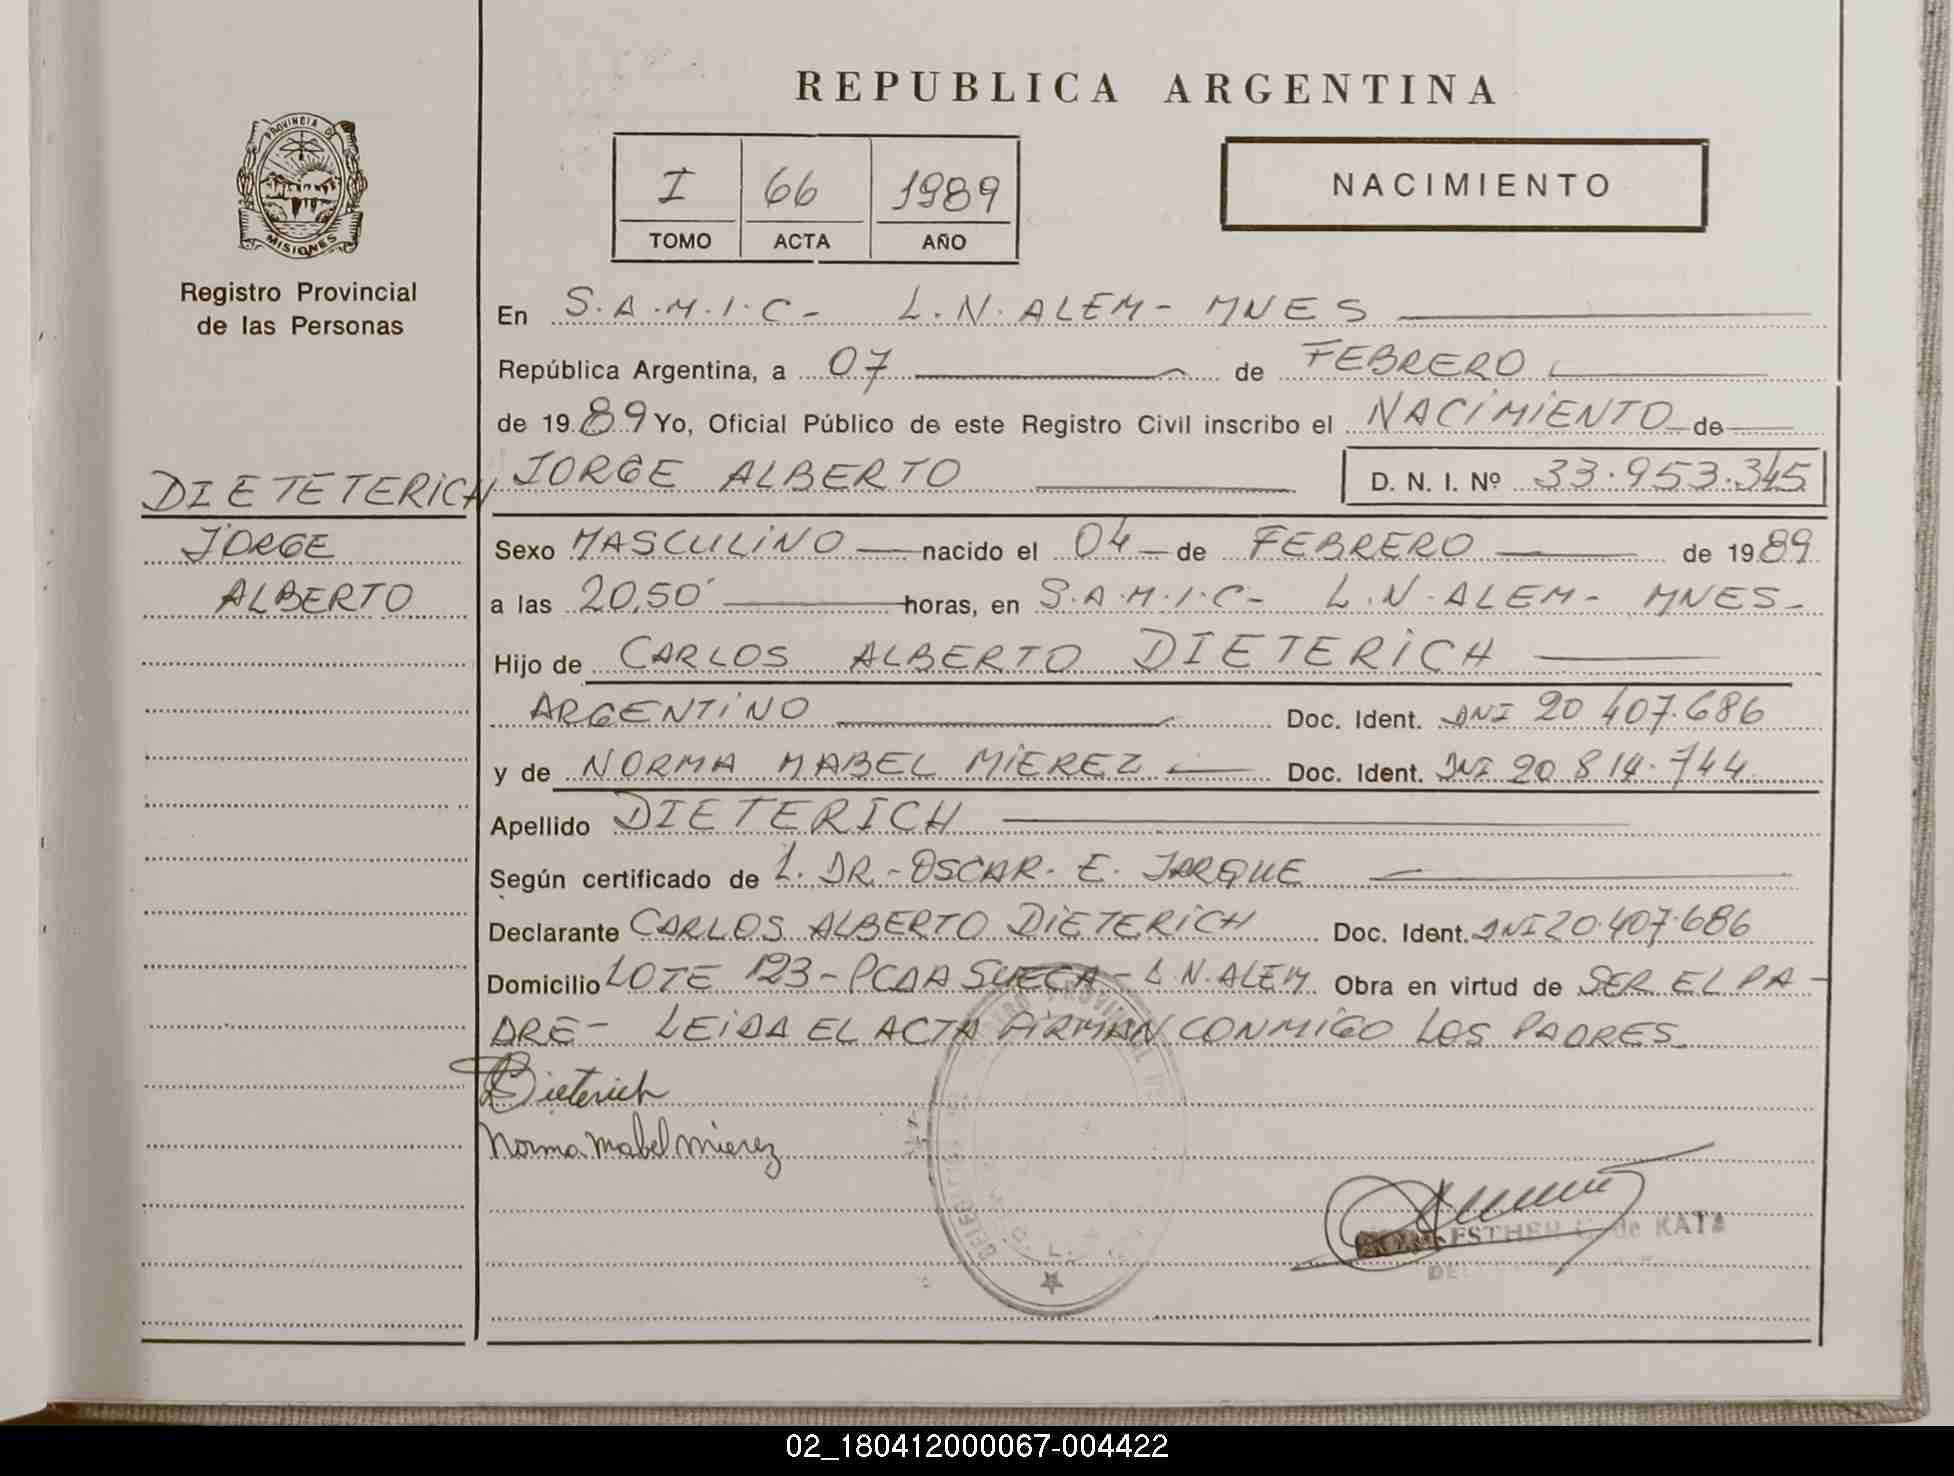 REPUBLICA ARGENTINA
PROVINCIA DE
MISIONES
Registro Provincial
de las Personas
I 66 1989
TOMO ACTA AÑO
NACIMIENTO
En S.A.M.I.C- L.N.ALEM- MNES
República Argentina, a 07 de FEBRERO
de 1989 Yo, Oficial Público de este Registro Civil inscribo el NACIMIENTO de
DIETETERICH
JORGE
ALBERTO
JORGE ALBERTO D. N. I. Nº 33.953.345
Sexo MASCULINO nacido el 04 de FEBRERO de 1989
a las 20,50' horas, en S.A.M.I.C- L.N.ALEM- MNES-
Hijo de CARLOS ALBERTO DIETERICH
ARGENTINO Doc. Ident. DNI 20 407.686
y de NORMA MABEL MIEREZ Doc. Ident. DNI 20 814.744
Apellido DIETERICH
Según certificado de L. DR.-OSCAR. E. JARQUE
Declarante CARLOS ALBERTO DIETERICH Doc. Ident. DNI 20.407.686
Domicilio LOTE 123-PCDA SUECA- L.N.ALEM Obra en virtud de SER EL PA-
DRE- LEIDA EL ACTA FIRMAN CONMIGO LOS PADRES
Dieterich
Norma Mabel Mierez
ESTHER de KATZ
02_180412000067-004422